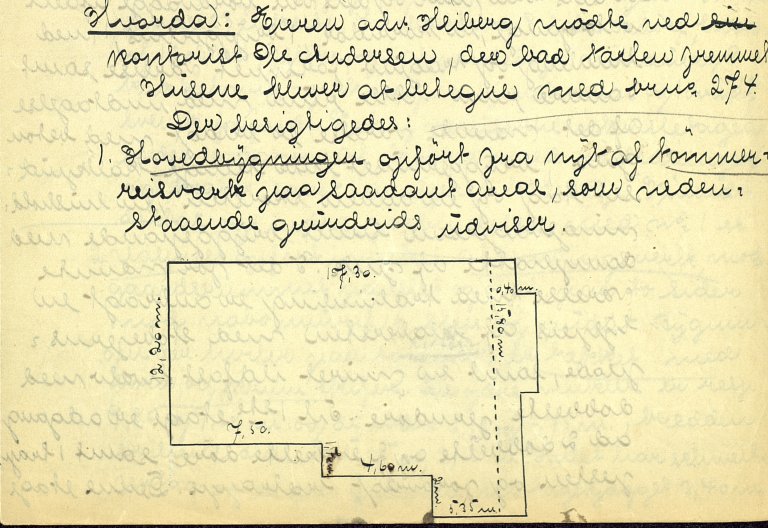 Hvorda: Eieren adv. Heiberg mödte ved sin
kontorist Ole Andersen, der bad takten fremmet
Husene bliver at betegne med bruz 274.
Der besigtigedes:
1. Hovedbygningen opfört fra nyt af tömmer=
reisverk paa saadant areal, som neden=
staaende grundrids udviser.
17,30.
0,40 m.
15,80 m.
12,20 m.
7,50.
4,60 m.
5,35 m.